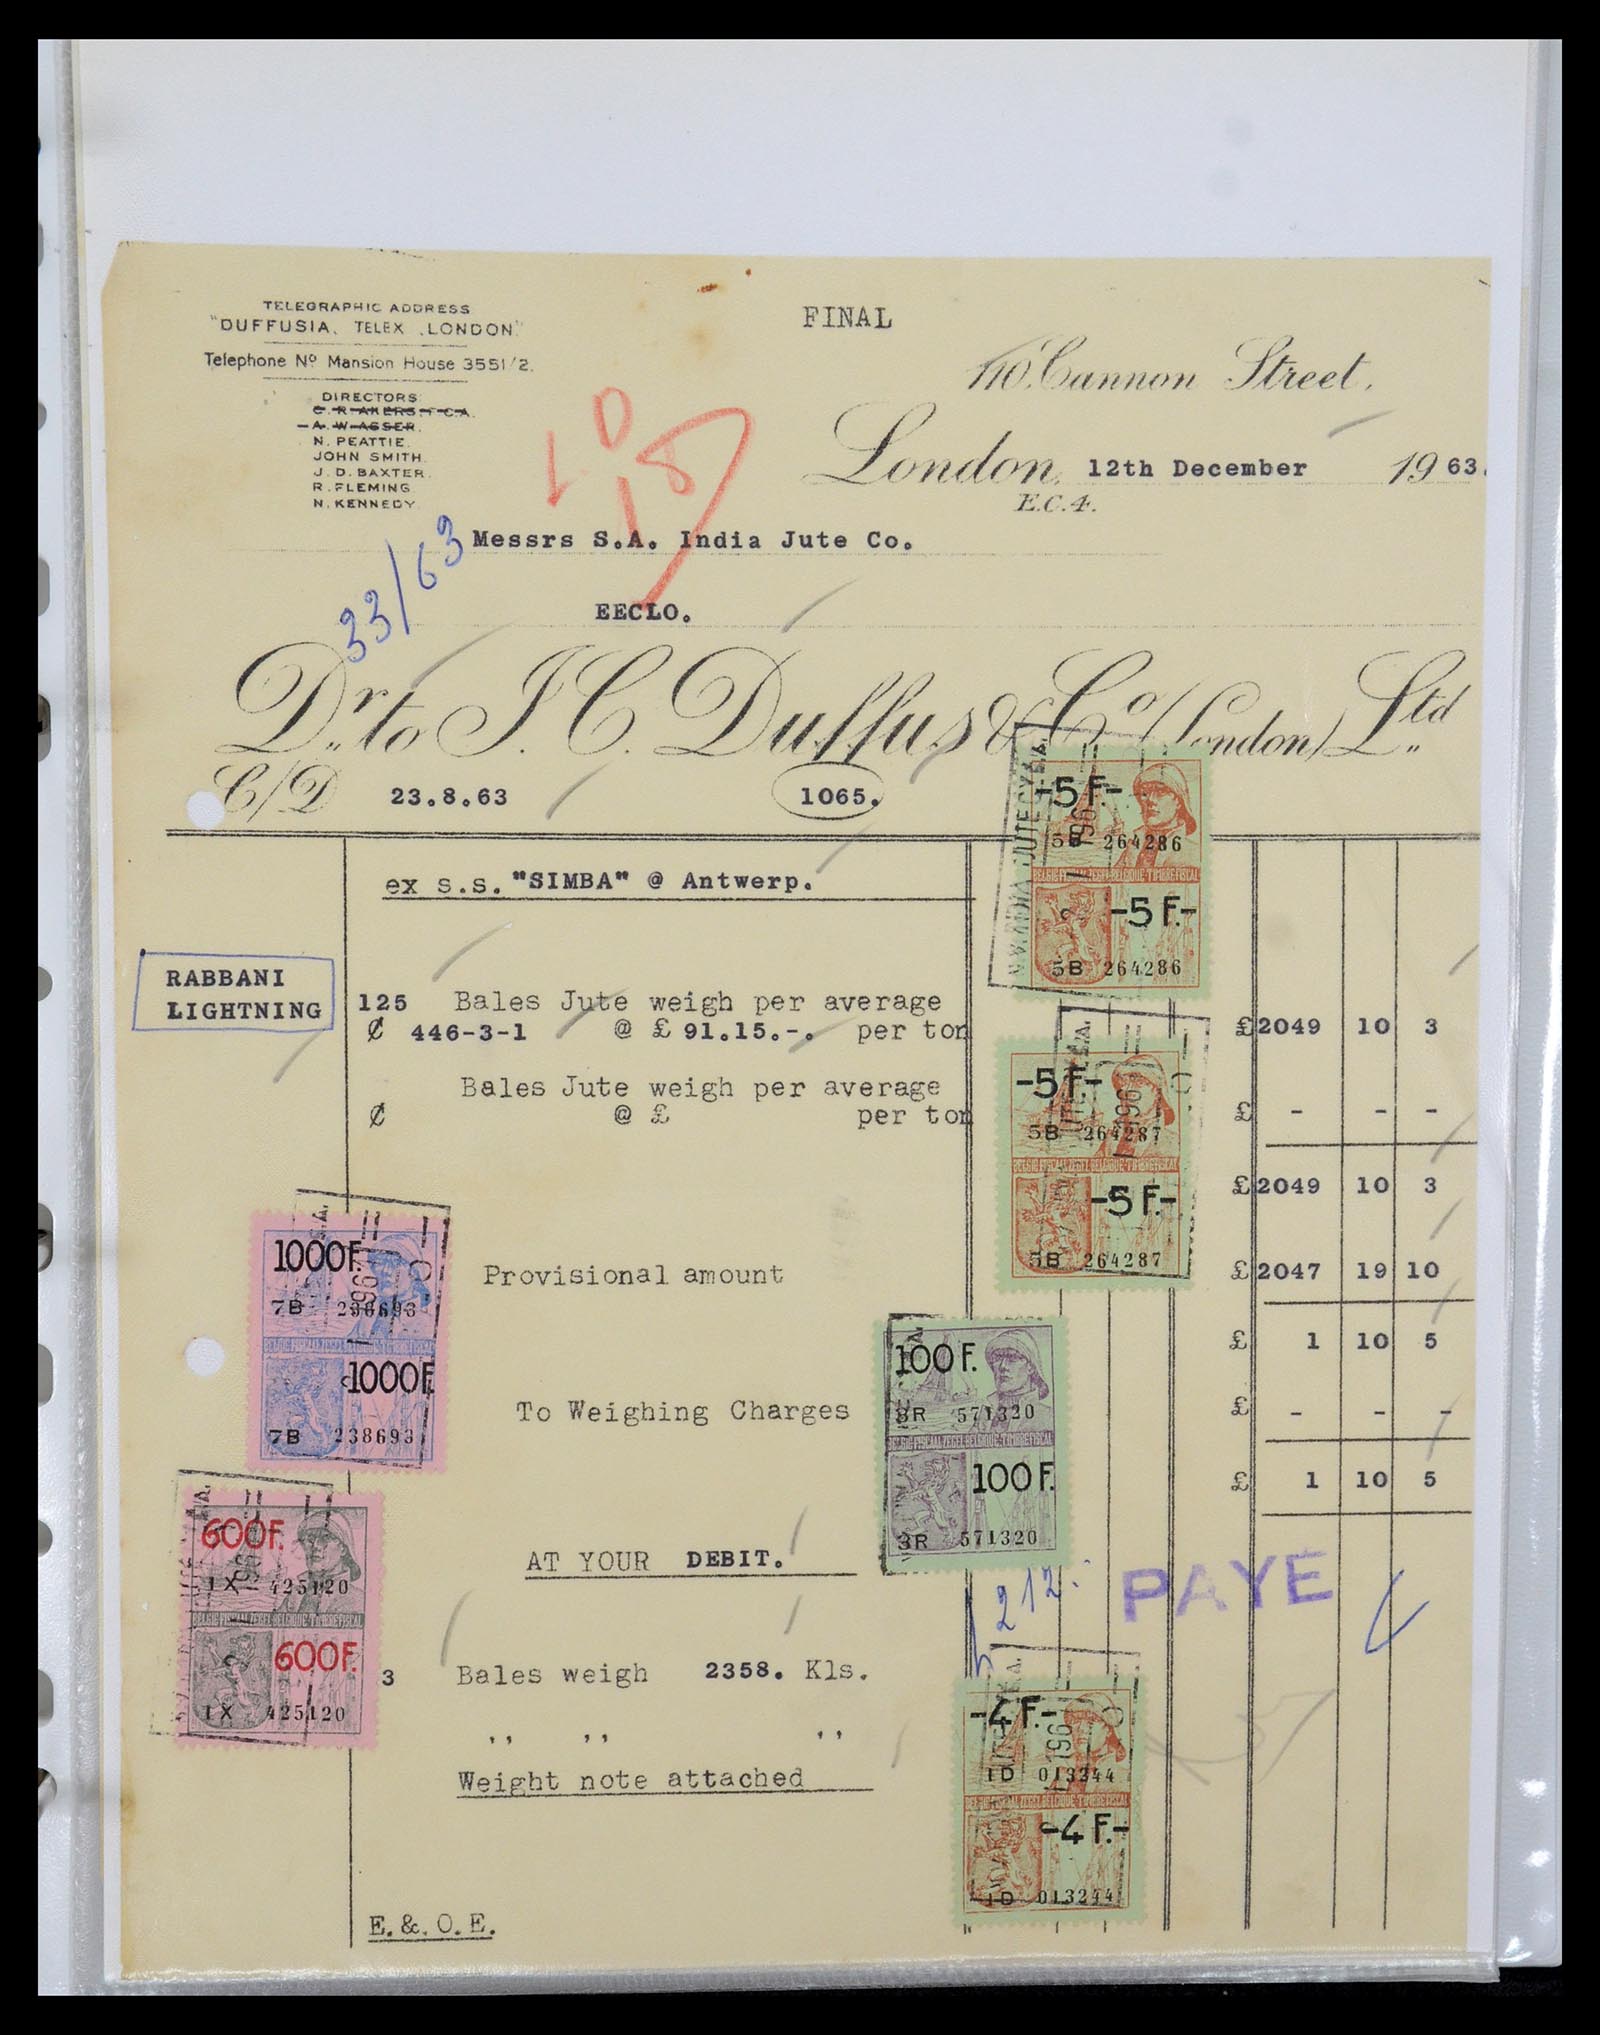 TELEGRAPHIC ADDRESS
"DUFFUSIA, TELEX, LONDON."
Telephone Nº Mansion House 3551/2.
DIRECTORS
C. R. AKERS. F.C.A.
A. W. ASSER.
N. PEATTIE.
JOHN SMITH.
J. D. BAXTER.
R. FLEMING.
N. KENNEDY.
FINAL
110, Cannon Street,
London, 12th December 1963.
E.C.4.
33/63
Messrs S.A. India Jute Co.
EECLO.
Dr. to J. C. Duffus & Co (London) Ltd
C/D 23.8.63 1065.
ex s.s. "SIMBA" @ Antwerp.
RABBANI
LIGHTNING
125 Bales Jute weigh per average
₡ 446-3-1 @ £ 91.15.-. per ton £2049 10 3
Bales Jute weigh per average
₡ @ £ per ton £ - - -
£2049 10 3
Provisional amount £2047 19 10
£ 1 10 5
To Weighing Charges £ - - -
£ 1 10 5
AT YOUR DEBIT.
212.
PAYE
3 Bales weigh 2358. Kls.
,, ,, ,,
Weight note attached
E. & O. E.
-5 F.-
5B 264286
BELGIE FISCAAL ZEGEL-BELGIQUE-TIMBRE FISCAL
-5 F.-
5B 264286
-5 F.-
5B 264287
BELGIE FISCAAL ZEGEL-BELGIQUE-TIMBRE FISCAL
-5 F.-
5B 264287
1000F.
7B 238693
1000F.
7B 238693
100 F.
3R 571320
BELGIE FISCAAL ZEGEL-BELGIQUE-TIMBRE FISCAL
100 F.
3R 571320
600F.
1X 425120
BELGIE FISCAAL ZEGEL-BELGIQUE-TIMBRE FISCAL
600F.
1X 425120
-4 F.-
1D 013244
BELGIE FISCAAL ZEGEL-BELGIQUE-TIMBRE FISCAL
-4 F.-
1D 013244